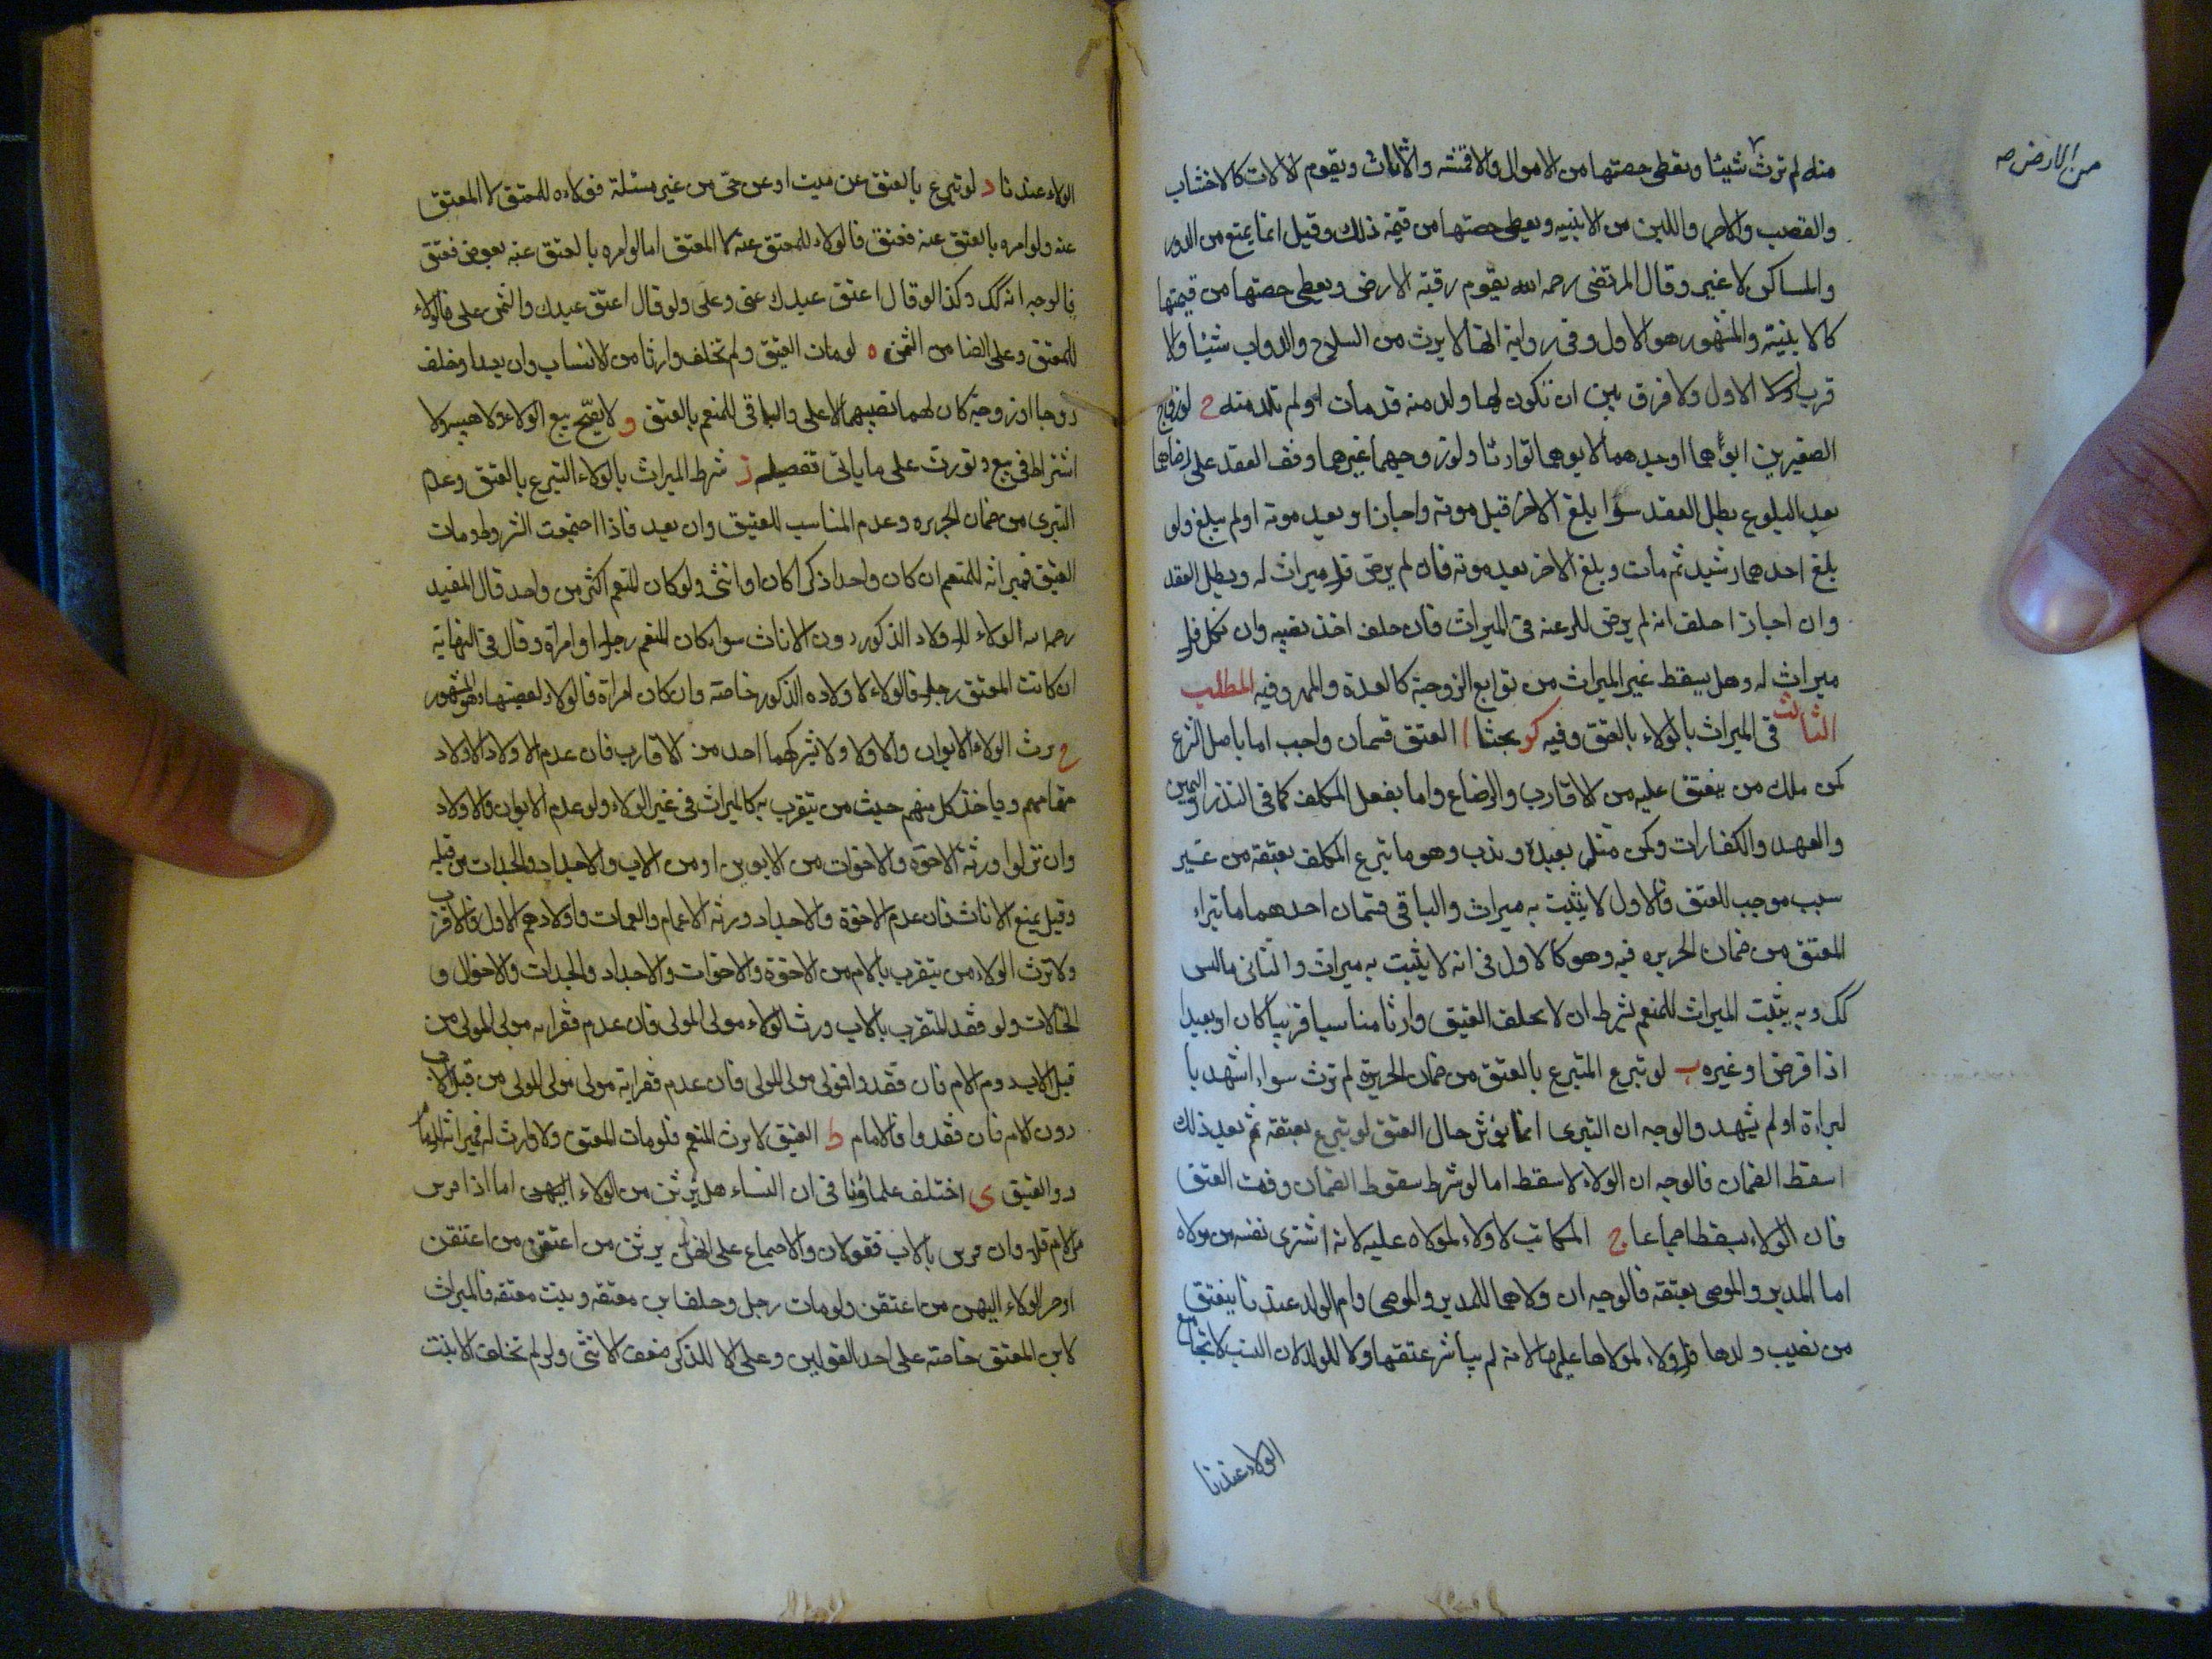 منه لم ترث شيئا ويعطى حصتها من الاموال والاقمشه والاثاث ويقوم الالات كالاخشاب
من الارض صه
والقصب والاجر واللبن من الابنيه ويعطى حصتها من قيمة ذلك وقيل انما يمنع من الدور
والمساكن لا غير وقال المرتضى رحمه الله يقوم رقبة الارض ويعطى حصتها من قيمتها
كالابنية والمشهور هو الاول وفى رواية انها لا يرث من السلاح والدواب شيئا والا
قرب الاول ولا فرق بين ان تكون لها ولد منه قد مات او لم تلد منه ح لو زوج
الصغيرين ابواهما او جدهما لابويهما توارثا ولو زوجهما غيرهما وقف العقد على رضاهما
بعد البلوغ بطل العقد سوا بلغ الاخر قبل موته واجاز او بعد موته او لم يبلغ ولو
بلغ احدهما رشيد ثم مات وبلغ الاخر بعد موته فان لم يرض فلا ميراث له وبطل العقد
وان اجاز احلف انه لم يرض للرغبه فى الميراث فان حلف اخذ نصيبه وان نكل فلا
ميراث له وهل يسقط غير الميراث من توابع الزوجية كالعدة والمهر وفيه المطلب
الثالث فى الميراث بالولاء بالعتق وفيه كو بحثا ا العتق قسمان واجب اما باصل الشرع
كمن ملك من ينعتق عليه من الاقارب والرضاع واما بفعل المكلف كما فى النذر واليمين
والعهد والكفارات وكمن مثل بعبده وندب وهو ما تبرع المكلف بعتقه من غير
سبب موجب للعتق فالاول لا يثبت به ميراث والباقى قسمان احدهما ما تبراء
المعتق من ضمان الجريره فيه وهو كالاول فى انه لا يثبت به ميراث والثانى ما ليس
كك وبه يثبت الميراث للمنعم بشرط ان لا يخلف العتيق وارثا مناسبا قريبا كان او بعيدا
اذا فرض او غيره ب لو تبرع المتبرع بالعتق من ضمان الجريرة لم ترث سواء اشهد با
لبراءة او لم يشهد والوجه ان التبرى انما يؤثر حال العتق لو تبرع بعتقه ثم بعد ذلك
اسقط الضمان فالوجه ان الولاء لا سقط اما لو شرط سقوط الضمان وقت العتق
فان الولاء يسقط اجماعا ج المكاتب لا ولاء لمولاه عليه لانه اشترى نفسه من مولاه
اما المدبر والموصى بعتقه فالوجه ان ولاهما للمدبر والموصى وام الولد عندنا ينعتق
من نصيب ولدها فلا ولاء لمولاها عليها لانه لم يباشر عتقها ولا للولد لان النسب لا تجامع
الولاء عندنا
الولاء عندنا د لو تبرع بالعتق عن ميت او عن حى من غير مسئلة فولاءه للمعتق لا المعتق
عنه ولو امره بالعتق عنه فعتق فالولاء للمعتق عنه لا المعتق اما لو امره بالعتق عنه بعوض فعتق
فالوجه انه كك وكذا لو قال اعتق عبدك عنى وعلى ولو قال اعتق عبدك والثمن على فالولاء
للمعتق وعلى الضامن الثمن ه لو مات العتيق ولم تخلف وارثا من الانساب وان بعد او خلف
زوجا او زوجة كان لهما نصيبهما الاعلى والباقى للمنعم بالعتق و لا يصح بيع الولاء ولا هبته ولا
اشتراط فى بيع وتورث على ما ياتى تفصيله ز شرط الميراث بالولاء التبرع بالعتق وعدم
التبرى من ضمان الجريره وعدم المناسب للعتيق وان بعد فاذا اجتمعت الشروط ومات
العتيق فميراثه للمنعم ان كان واحدا ذكرا كان او انثى ولو كان المنعم اكثر من واحد قال المفيد
رحمه الله الولاء للاولاد الذكور دون الاناث سواء كان المنعم رجلا او امراة وقال فى النهاية
ان كانت المعتق رجلا فالولاء لاولاده الذكور خاصة وان كان امراة فالولاء لعصبتها وهو المشهور
ح يرث الولاء الابوان والاولاد ولا يشركهما احد من الاقارب فان عدم الاولاد فالاولاد
مقامهم وياخذ كل منهم حيث من يتقرب به كالميراث فى غير الولاء ولو عدم الابوان والاولاد
وان نزلوا ورثه الاخوة والاخوات من الابوين او من الاب والاجداد والجدات من قبله
وقيل يمنع الاناث فان عدم الاخوة والاجداد ورثه الاعمام والعمات واولادهم الاول فالاقرب
ولا ترث الولاء من يتقرب بالام من الاخوة والاخوات والاجداد والجدات والاخوال و
الخالات ولو فقد المتقرب بالاب ورث الولاء مولى المولى فان عدم فقرابه مولى المولى من
قبل الاب دون الام فان فقدوا فمولى مولى المولى فان عدم فقرابه مولى مولى المولى من قبل الاب
دون الام فان فقدوا فالامام ط العتيق لا يرث المنعم فلو مات المعتق ولا وارث له فميراثه للامام
دون العتيق ى اختلف علماؤنا فى ان النساء هل يرثن من الولاء
بالاب فقولان والاجماع على انهن يرثن من اعتقن ومن اعتقن
او جر الولاء اليهن من اعتقن ولو مات رجل وخلف ابن معتقه وبنت معتقه فالميراث
لابن المعتق خاصة على احد القولين وعلى الا للذكر ضعف الانثى ولو لم تخلف الا بنت